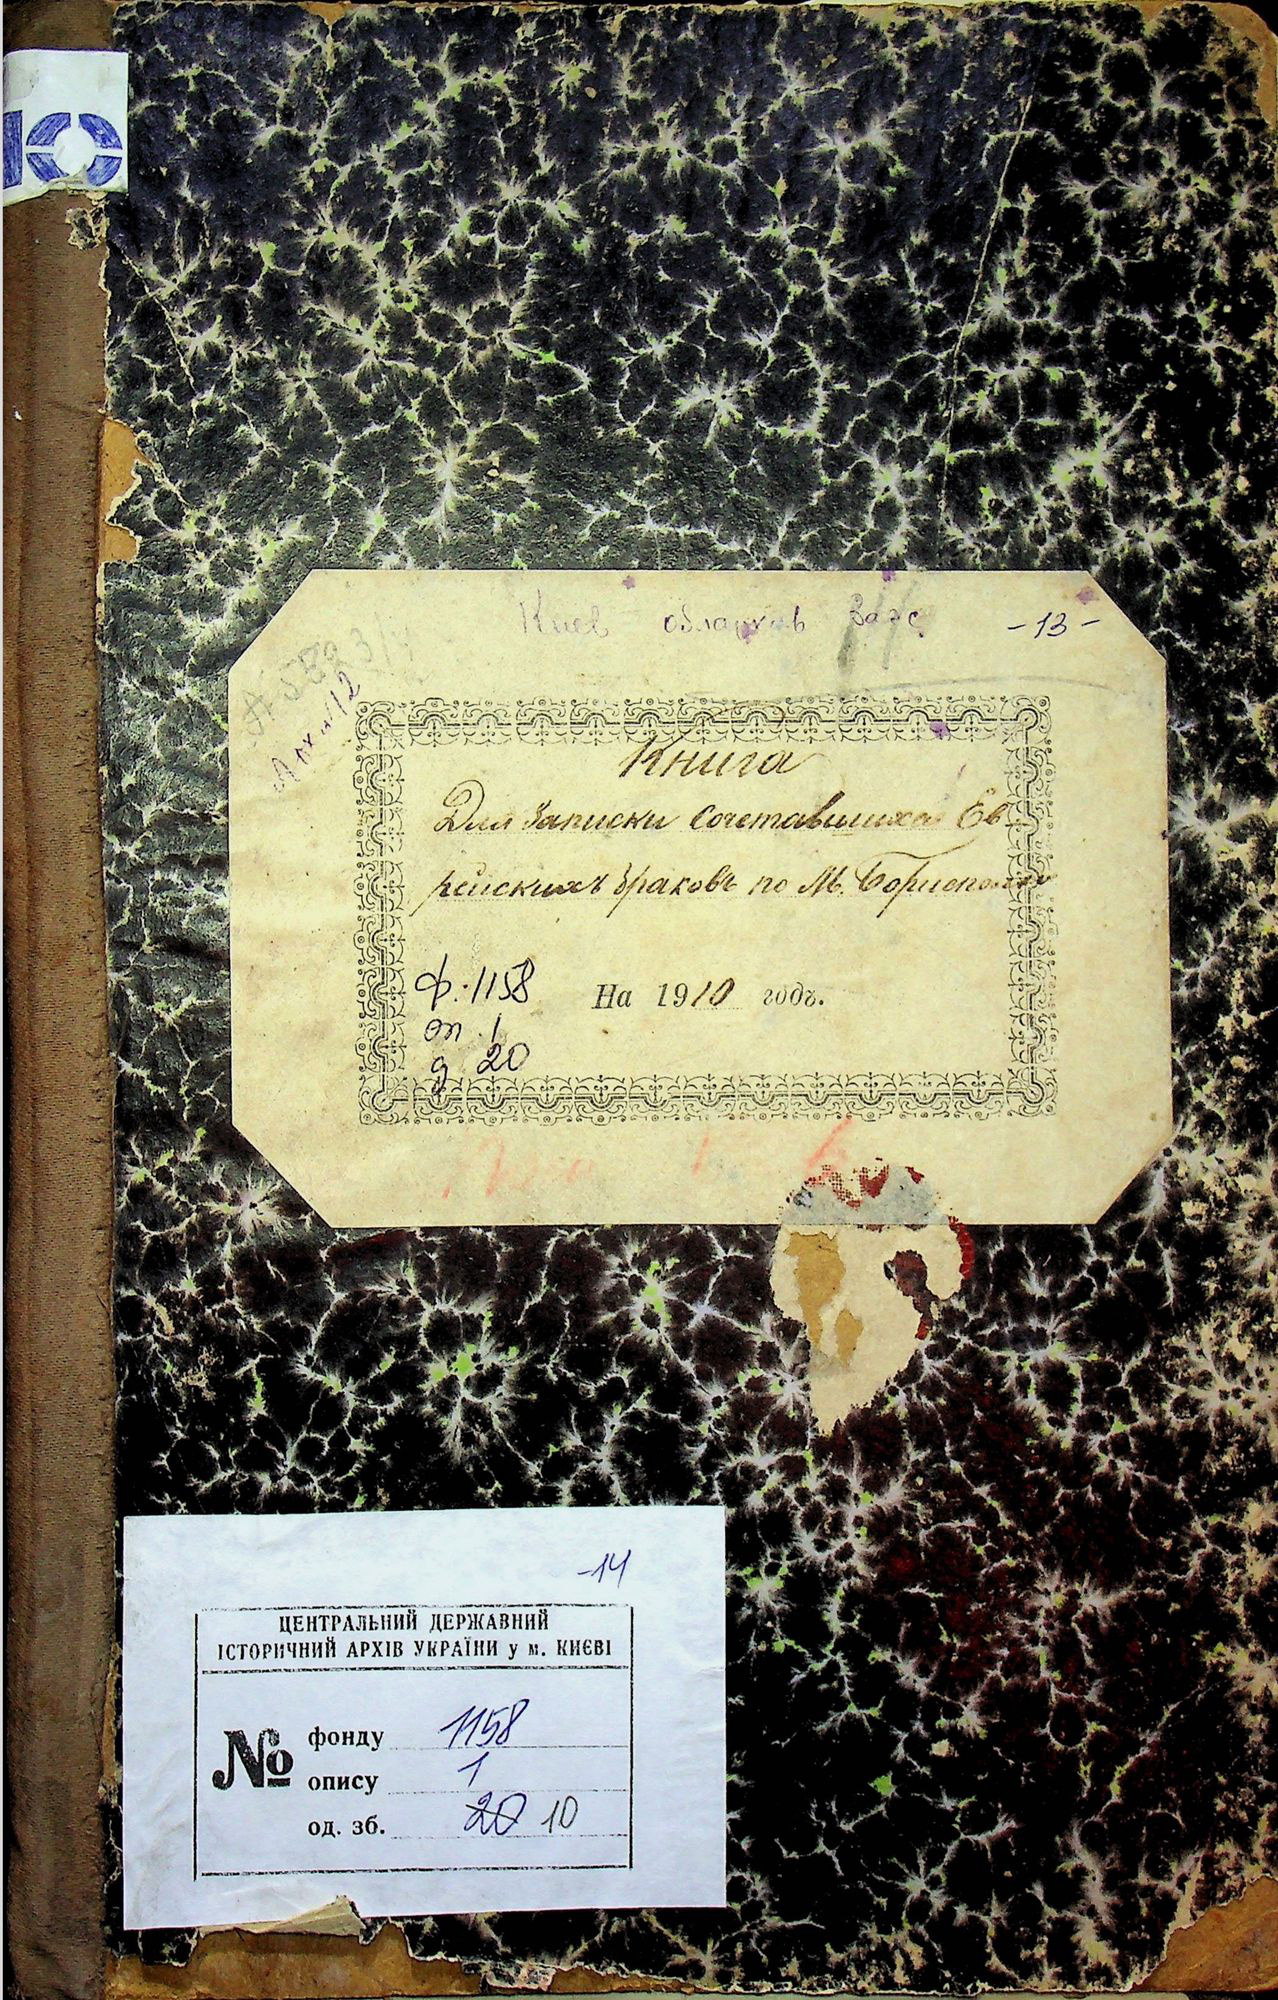 10
Киев областн Загс -13-
Книга
Для записки сочетавшихся Ев
рейскихъ браковъ по М. Борисполю
ф. 1158
На 1910 годъ.
оп 1
д 20
-14
ЦЕНТРАЛЬНИЙ ДЕРЖАВНИЙ
ІСТОРИЧНИЙ АРХІВ УКРАЇНИ у м. КИЄВІ
№
фонду 1158
опису 1
од. зб. 20 10